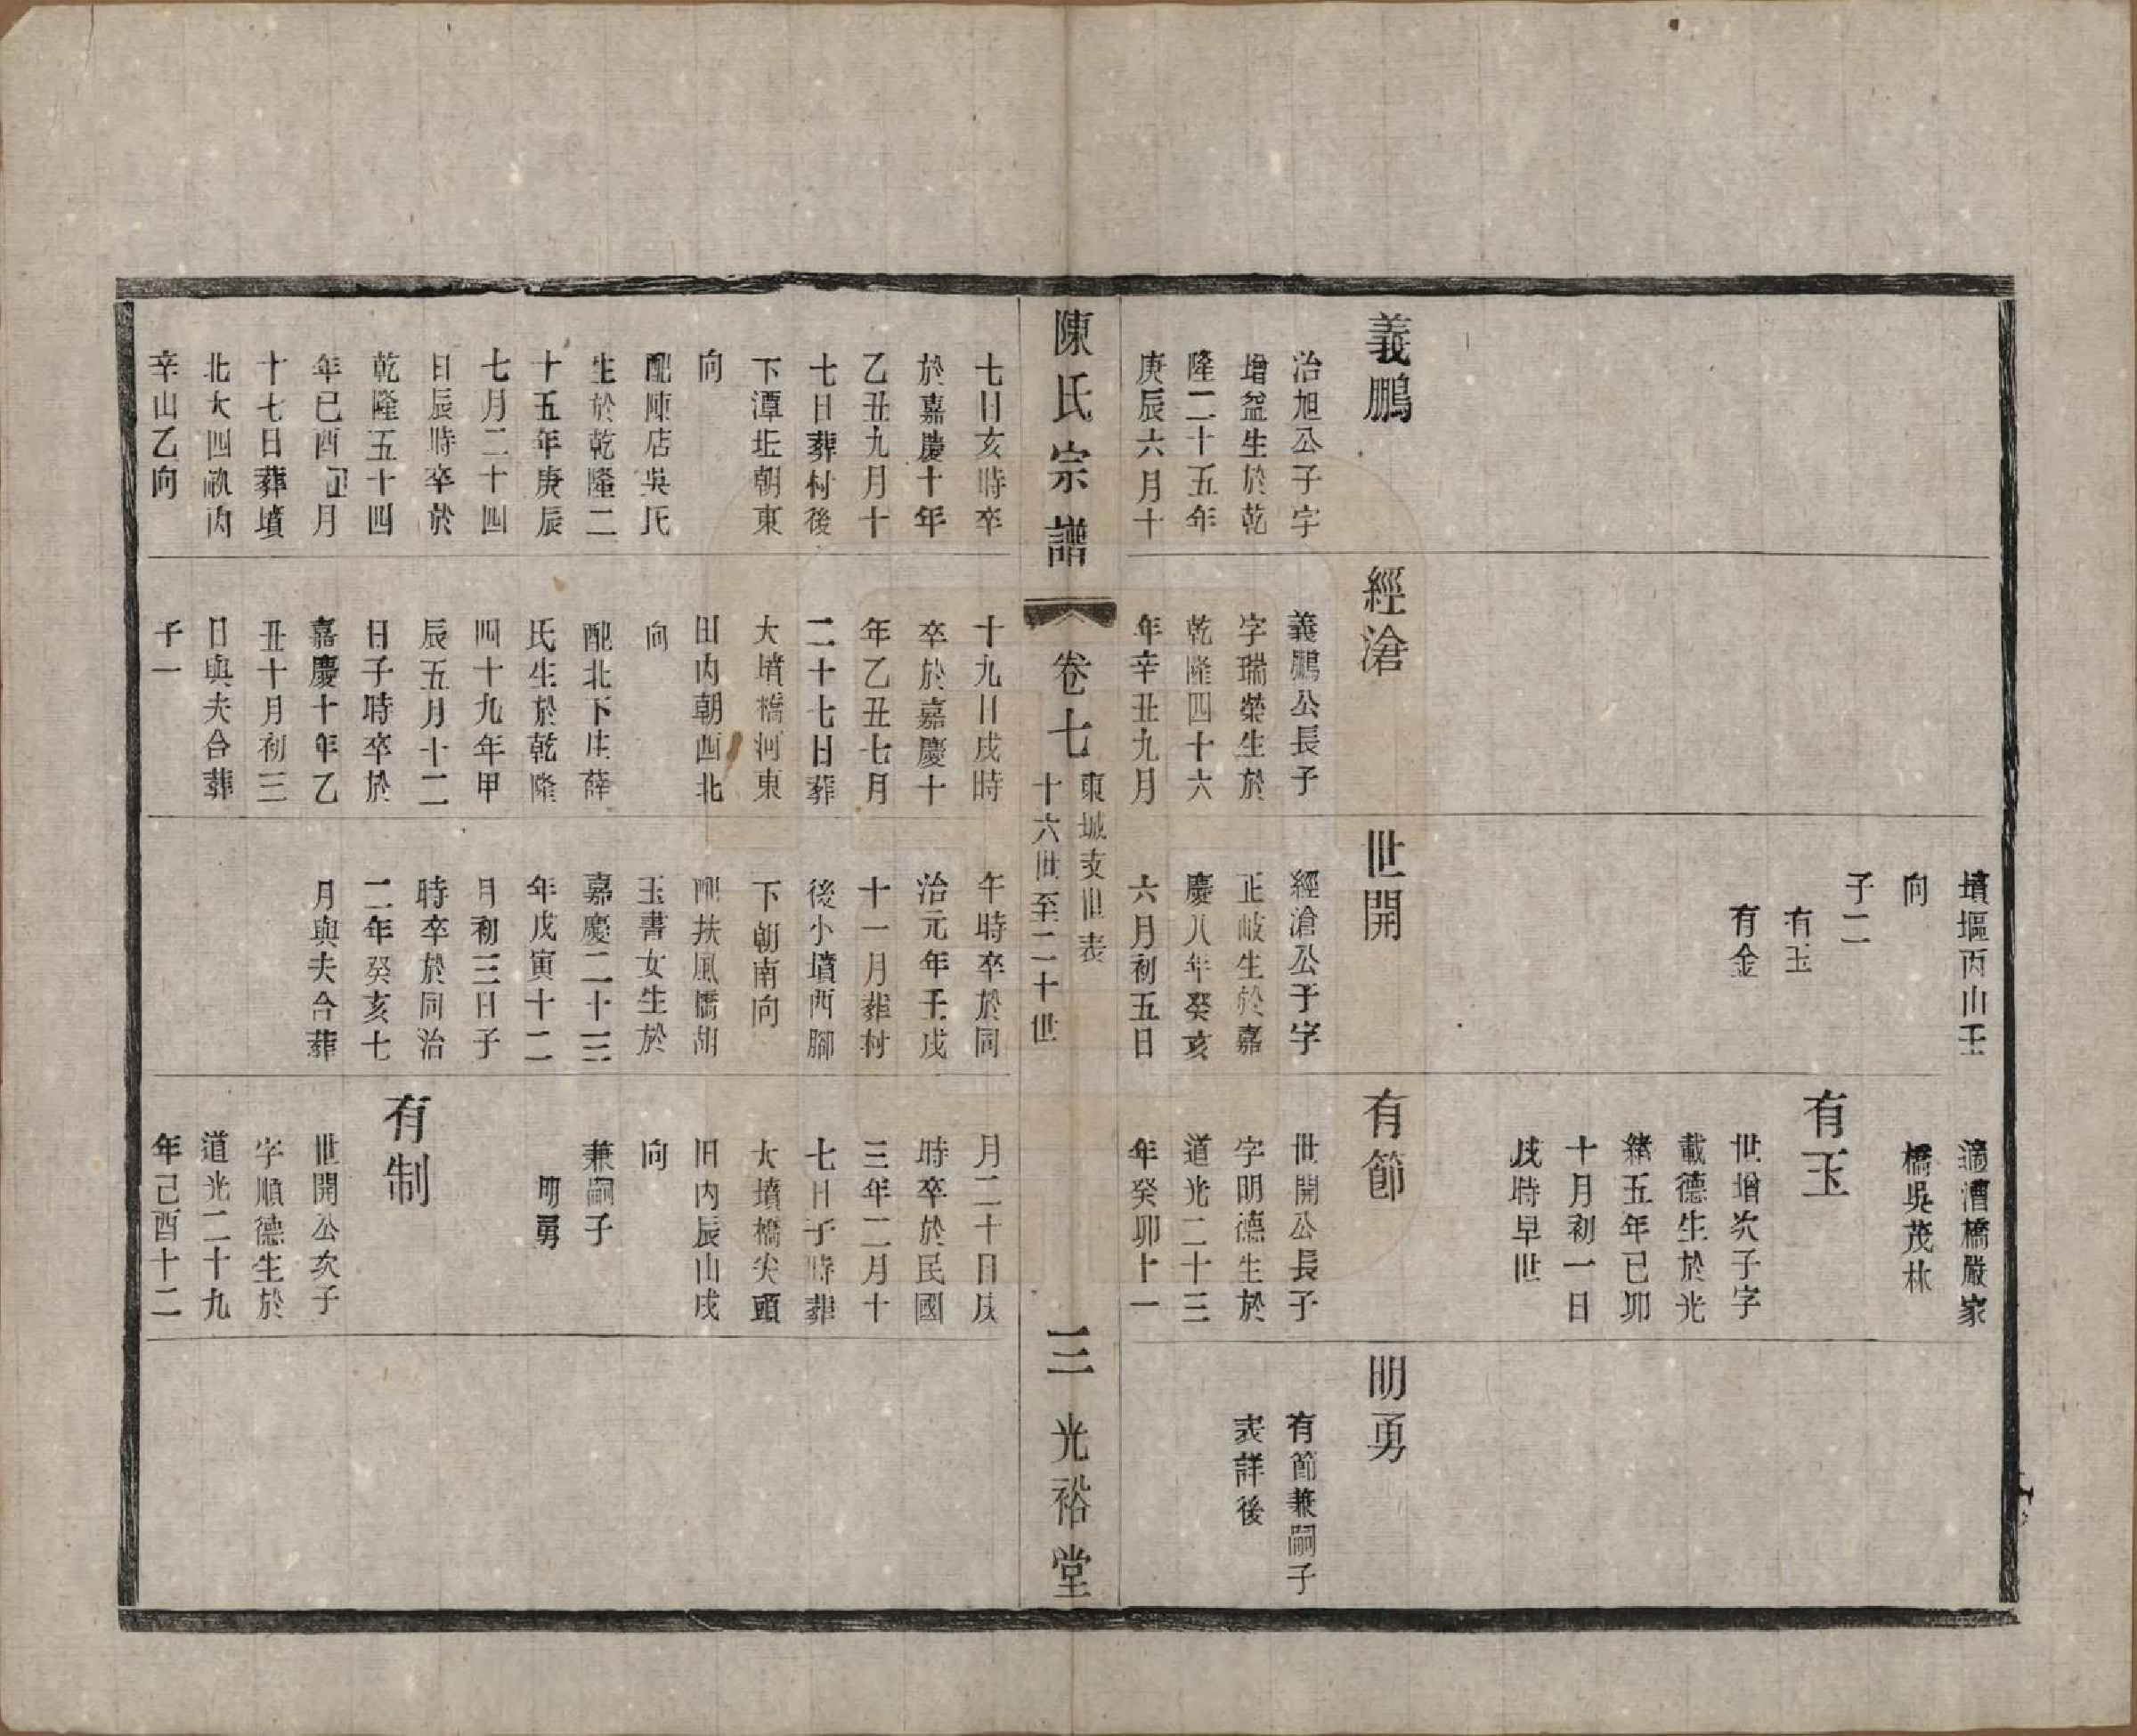 義鵬
治旭公子字
增益生於乾
隆二十五年
庚辰六月十
經滄
義鵬公長子
字瑞榮生於
乾隆四十六
年辛丑九月
墳堰丙山壬
向
子二
有玉
有金
世開
經滄公子字
正岐生於嘉
慶八年癸亥
六月初五日
適漕橋嚴家
橋吳茂林
有玉
世增次子字
載德生於光
緒五年已卯
十月初一日
戌時早世
有節
世開公長子
字明德生於
道光二十三
年癸卯十一
明勇
有節兼嗣子
表詳後
陳氏宗譜
卷七
東城支世表
十六世至二十世
三
光裕堂
七日亥時卒
於嘉慶十年
乙丑九月十
七日葬村後
下潭坵朝東
向
配陳店吳氏
生於乾隆二
十五年庚辰
七月二十四
日辰時卒於
乾隆五十四
年已酉正月
十七日葬墳
北大四畝內
辛山乙向
十九日戌時
卒於嘉慶十
年乙丑七月
二十七日葬
大墳橋河東
田內朝西北
向
配北下庄薛
氏生於乾隆
四十九年甲
辰五月十二
日子時卒於
嘉慶十年乙
丑十月初三
日與夫合葬
子一
午時卒於同
治元年壬戌
十一月葬村
後小墳西腳
下朝南向
配扶風橋胡
玉書女生於
嘉慶二十三
年戊寅十二
月初三日子
時卒於同治
二年癸亥七
月與夫合葬
月二十日戌
時卒於民國
三年二月十
七日子時葬
大墳橋尖頭
田內辰山戌
向
兼嗣子
明勇
有制
世開公次子
字順德生於
道光二十九
年己酉十二